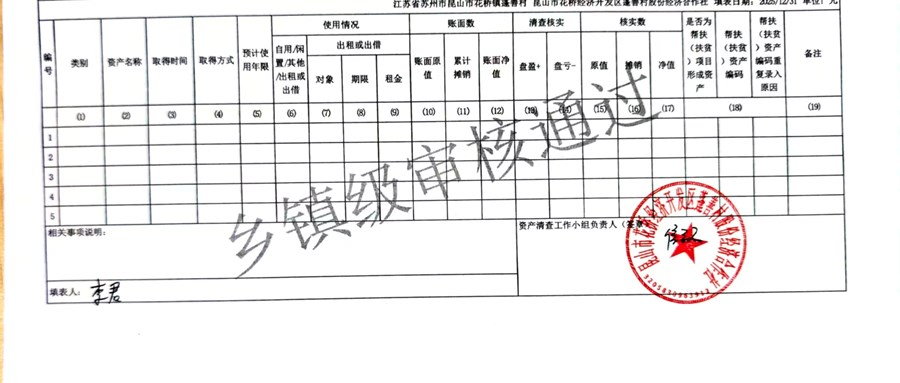 江苏省苏州市昆山市花桥镇蓬善村 昆山市花桥经济开发区蓬善村股份经济合作社 填表日期: 2025/12/31 单位: 元
编号 类别 资产名称 取得时间 取得方式 预计使用年限 使用情况 账面数 清查核实 核实数 是否为帮扶（扶贫）项目形成资产 帮扶（扶贫）资产编码 帮扶（扶贫）资产编码重复录入原因 备注
自用/闲置/其他/出租或出借 出租或出借 账面原值 累计摊销 账面净值 盘盈+ 盘亏- 原值 摊销 净值
对象 期限 租金
(1) (2) (3) (4) (5) (6) (7) (8) (9) (10) (11) (12) (13) (14) (15) (16) (17) (18) (19)
1
2
3
4
5
乡镇级审核通过
相关事项说明:
资产清查工作小组负责人（签章
昆山市花桥经济开发区蓬善村股份经济合作社
填表人: 李君